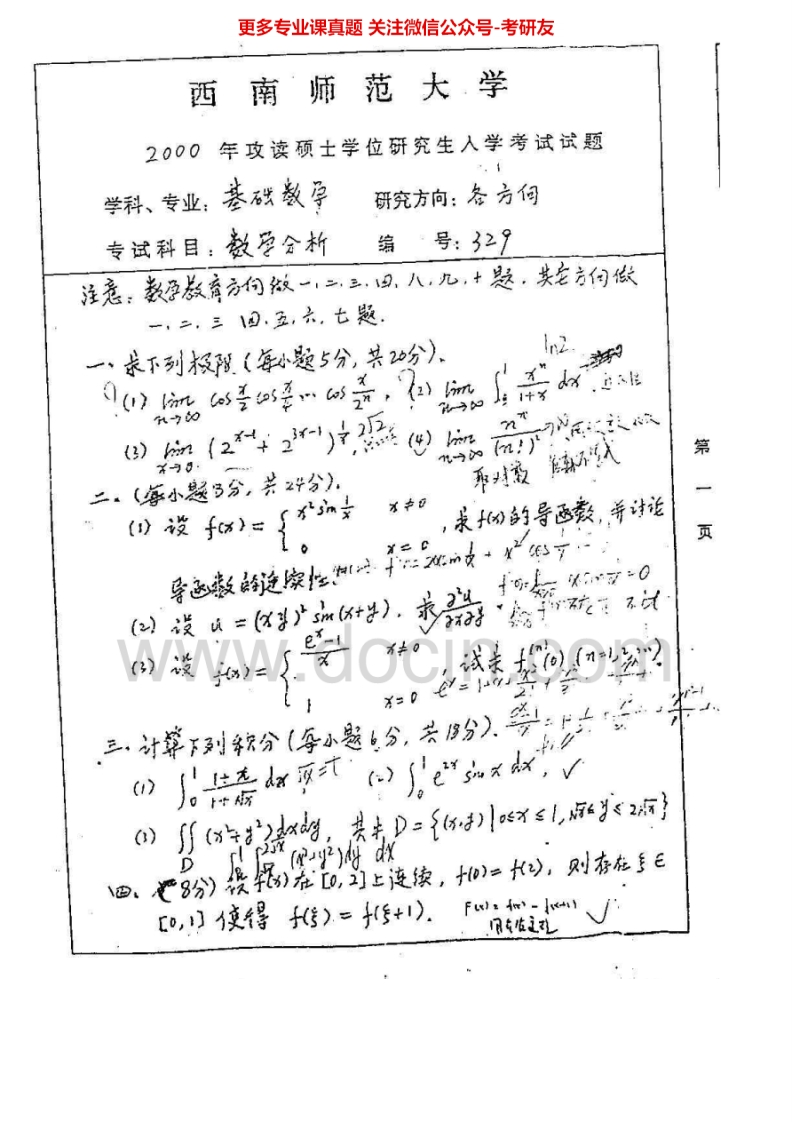 更多专业课真题 关注微信公众号-考研友
西南师范大学
2000 年攻读硕士学位研究生入学考试试题
学科、专业: 基础数学 研究方向: 各方向
考试科目: 数学分析 编 号: 329
注意: 数学教育方向做一、二、三、四、八、九、十题,其它方向做
一、二、三、四、五、六、七题.
一、求下列极限 (每小题5分, 共20分).
(1) lim n→∞ cos x/2 cos x/4 … cos x/2ⁿ, (2) lim n→∞ ∫₀¹ xⁿ/(1+x) dx ln2
(3) lim x→0 (2^(x-1) + 2^(3x-1))^(1/x) 2√2 (4) lim n→∞ nⁿ/(n!)²
取对数
二、(每小题8分, 共24分).
(1) 设 f(x) = { x² sin 1/x x≠0
0 x=0 , 求f(x)的导函数, 并讨论
导函数的连续性.
(2) 设 u = (xy)² sin(x+y). 求 ∂²u/∂x∂y.
(3) 设 f(x) = { (eˣ-1)/x x≠0
1 x=0 , 试求 f⁽ⁿ⁾(0) (n=1,2,…).
三、计算下列积分 (每小题6分, 共18分).
(1) ∫₀¹ (1+x)/(1+√x) dx √x=t (2) ∫₀¹ e^(2x) sin x dx, ✓
(3) ∬_D (x²+y²)dxdy, 其中 D={(x,y)|0≤x≤1, √x≤y≤2√x}
∫₀¹ ∫ (x²+y²)dy dx
四、(8分) 设f(x)在[0,2]上连续, f(0)=f(2), 则存在ξ∈
[0,1] 使得 f(ξ) = f(ξ+1). F(x)=f(x)-f(x+1) ✓
第一页
www.docin.com